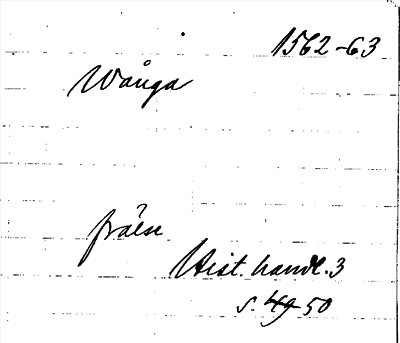 1562-63
Wånga
frälse
Hist. handl. 3
s. 49 50